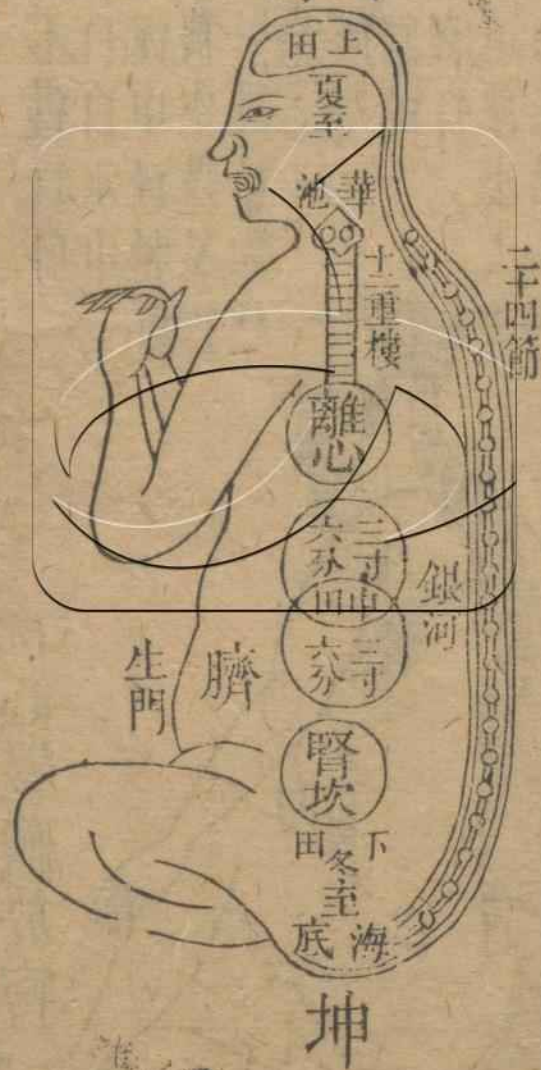 上田
夏至
華池
十二重樓
二十四節
離心
三寸六分
中田
三寸六分
銀河
臍
生門
腎坎
下田
冬至
海底
坤